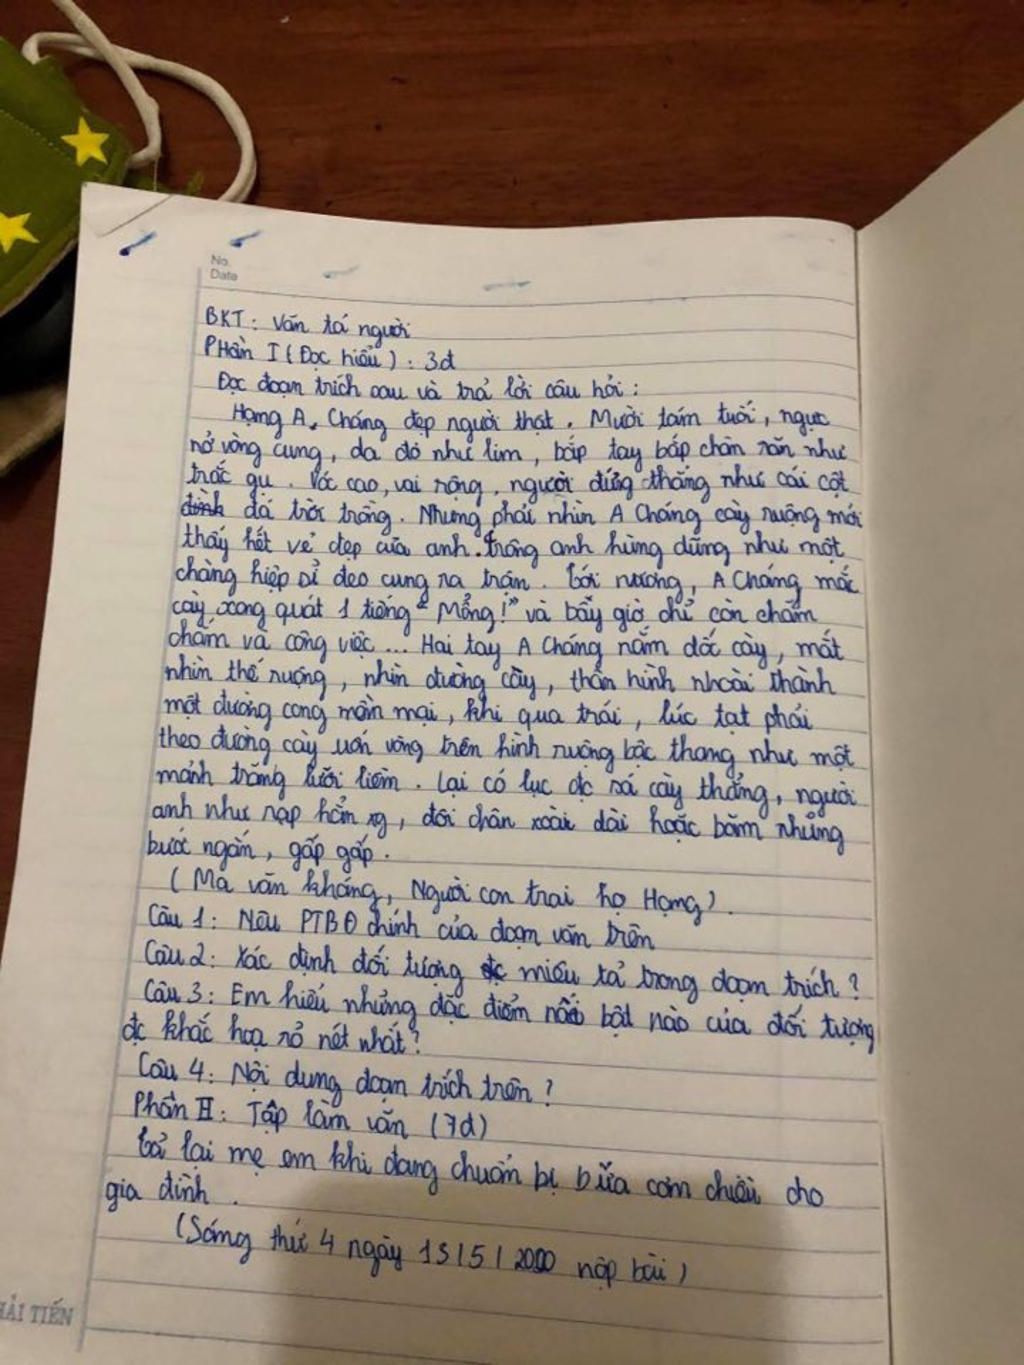 No.
Date
BKT: Văn tả người
PHần I (Đọc hiểu): 3đ
Đọc đoạn trích sau và trả lời câu hỏi:
Hạng A, Cháng đẹp người thật. Mười tám tuổi, ngực
nở vòng cung, da đỏ như lim, bắp tay bắp chân rắn như
trắc gụ. Vóc cao, vai rộng, người đứng thẳng như cái cột
đá trời trồng. Nhưng phải nhìn A Cháng cày ruộng mới
thấy hết vẻ đẹp của anh. trông anh hùng dũng như một
chàng hiệp sĩ đeo cung ra trận. Tới nương, A Cháng mắc
cày xong quát 1 tiếng "Mổng!" và bây giờ chỉ còn chăm
chăm và công việc... Hai tay A Cháng nắm đốc cày, mắt
nhìn thế ruộng, nhìn đường cày, thân hình nhoài thành
một đường cong mềm mại, khi qua trái, lúc tạt phải
theo đường cày uốn vòng trên hình ruộng bậc thang như một
mảnh trăng lưỡi liềm. Lại có lục đc sá cày thẳng, người
anh như rạp hẳn xg, đôi chân xoài dài hoặc băm những
bước ngắn, gấp gấp.
(Ma văn kháng, Người con trai họ Hạng).
Câu 1: Nêu PTBĐ chính của đoạn văn trên
Câu 2: Xác định đối tượng đc miêu tả trong đoạn trích?
Câu 3: Em hiểu những đặc điểm nổi bật nào của đối tượng
đc khắc hoạ rõ nét nhất?
Câu 4: Nội dung đoạn trích trên?
Phần II: Tập làm văn (7đ)
Tả lại mẹ em khi đang chuẩn bị bữa cơm chiều cho
gia đình.
(Sáng thứ 4 ngày 13/5/2020 nộp bài)
HẢI TIẾN